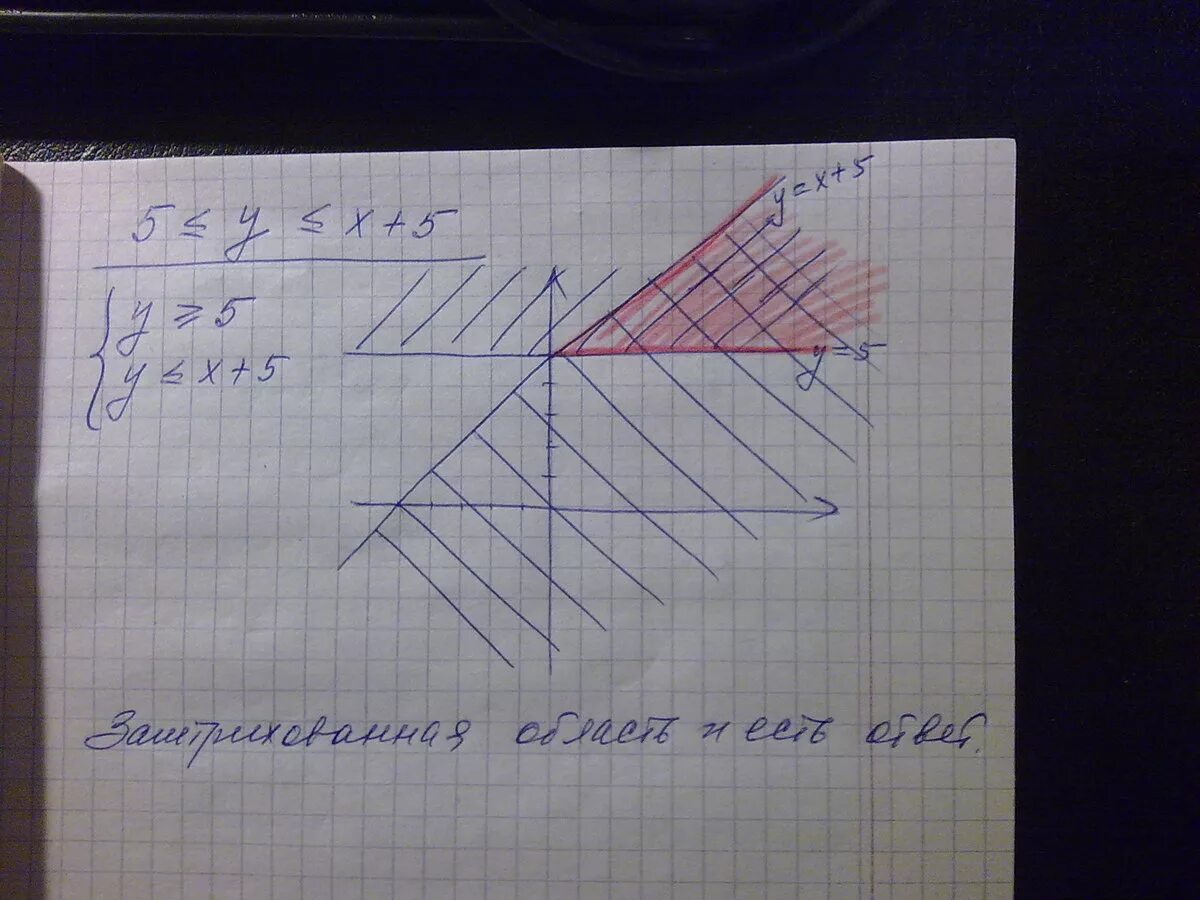 5 ≤ y ≤ x + 5
y ≥ 5
y ≤ x + 5
y = x + 5
y = 5
Заштрихованная область и есть ответ.